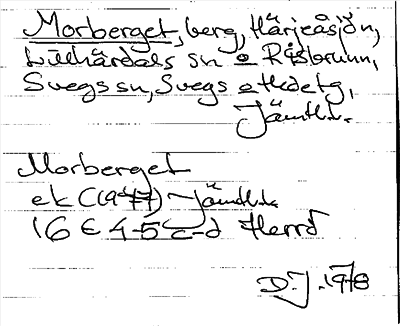 Morberget, berg, Härjeåsjön,
Lillhärdals sn o Råsbrunn,
Svegs sn, Svegs
Jämtl.
Morberget
ek (1977) Jämtl.
16 E 4-5 c-d Herrö
D.J. 1978